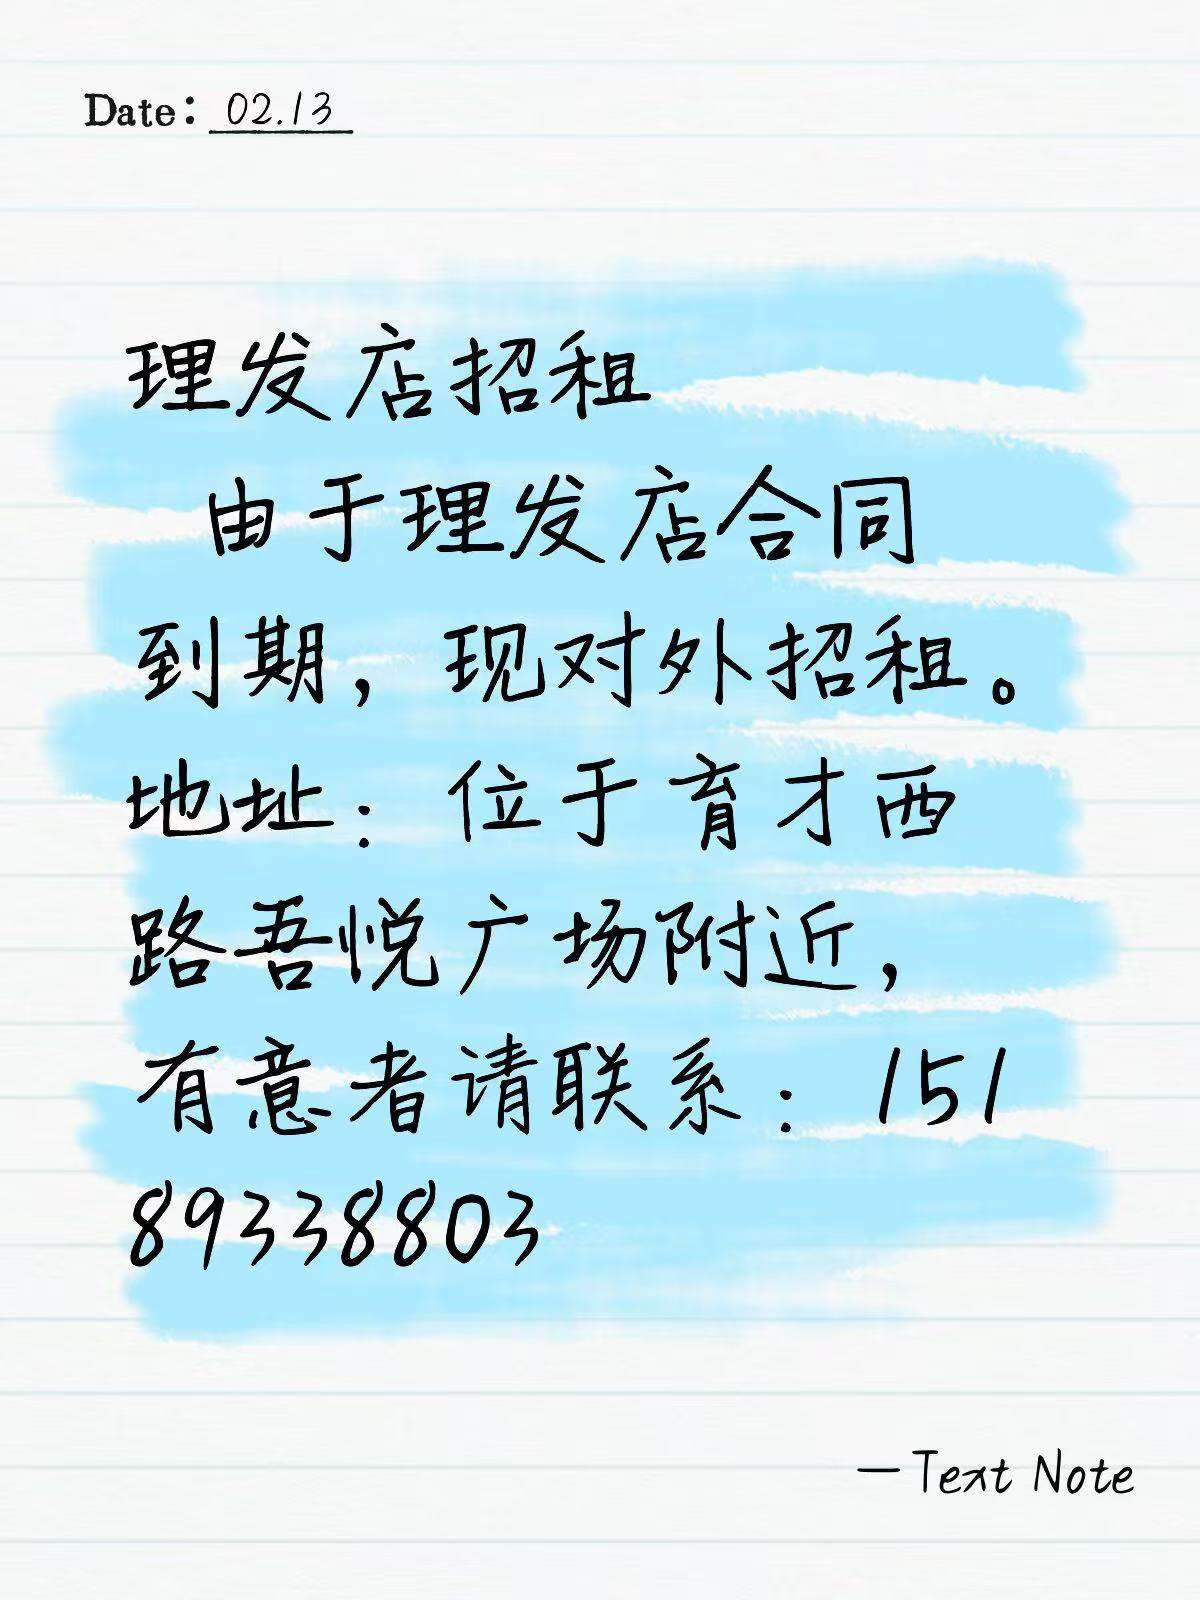 Date: 02.13
理发店招租
由于理发店合同
到期，现对外招租。
地址：位于育才西
路吾悦广场附近，
有意者请联系：151
89338803
—Text Note